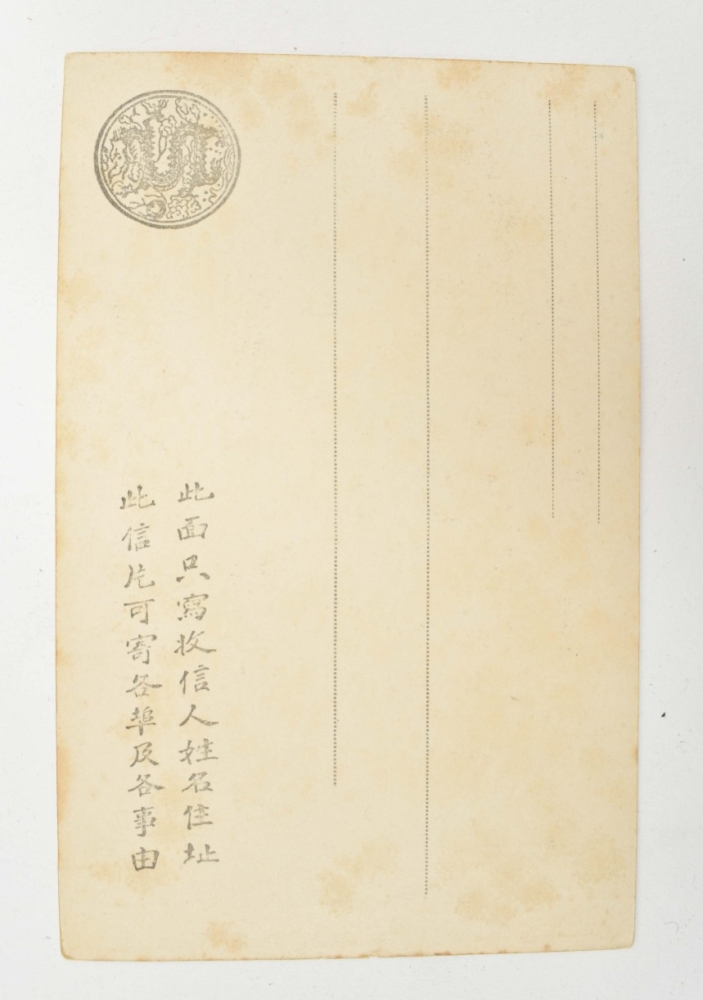 此面只寫收信人姓名住址
此信片可寄各埠及各事由